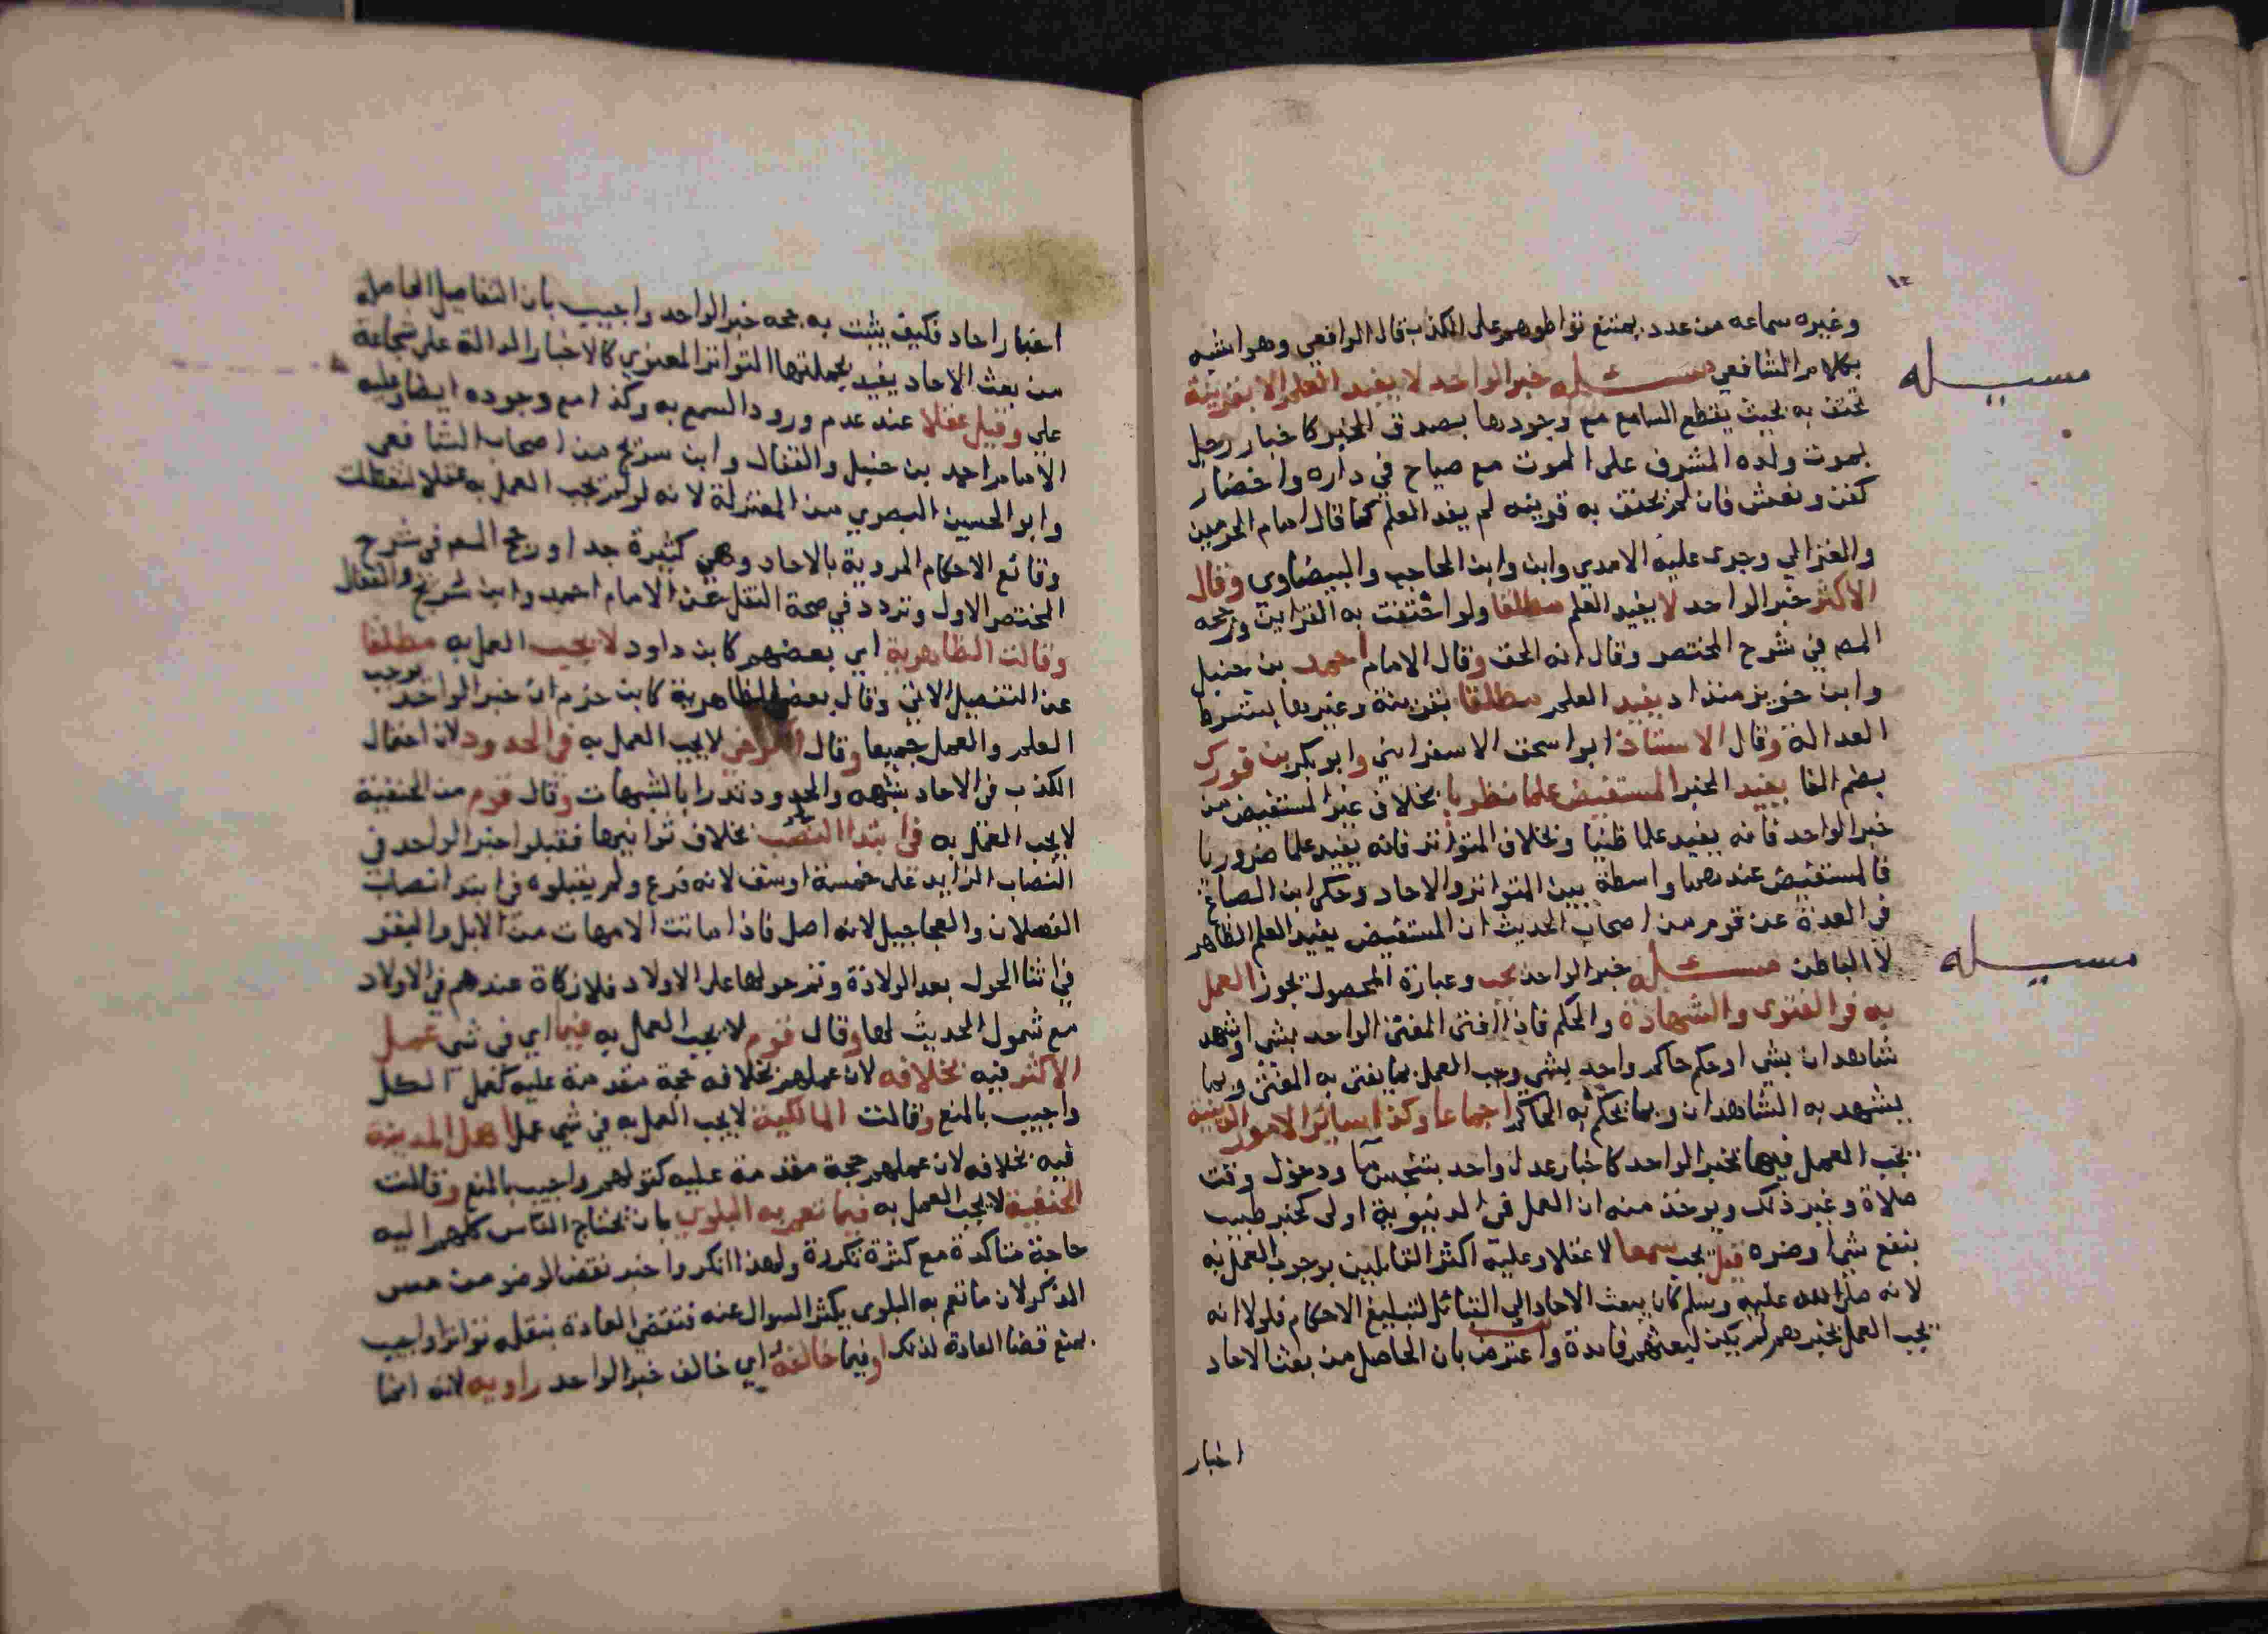 ١٢
وغيره سماعه من عدد يمتنع تواطوهم على الكذب قال الرافعي وهو اشبه
بكلام الشافعي مسئله خبر الواحد لا يفيد العلم الا بقرينة
مسيله
تحتف به بحيث يقطع السامع مع وجودها بصدق الخبر كاخبار رجل
بموت ولده المشرف على الموت مع صياح في داره واحضار
كفن ونعش فان لم تحتف به قرينه لم يفد العلم كما قال امام الحرمين
والغزالي وجرى عليه الامدي وابن وابن الحاجب والبيضاوي وقال
الاكثر خبر الواحد لا يفيد العلم مطلقا ولو احتفت به القراين ورجحه
المص في شرح المختصر وقال انه الحق وقال الامام احمد بن حنبل
وابن خويز منداد يفيد العلم مطلقا بقرينة وغيرها بشرط
العدالة وقال الاستاذ ابو اسحق الاسفرايني وابو بكر بن فورك
بضم الفا يفيد الخبر المستفيض علما نظريا بخلاف غير المستفيض من
خبر الواحد فانه يفيد علما ظنيا وبخلاف المتواتر فانه يفيد علما ضروريا
فالمستفيض عندهما واسطة بين المتواتر والاحاد وحكى ابن الصباغ
في العدة عن قوم من اصحاب الحديث ان المستفيض يفيد العلم الظاهر
لا الباطن مسئله خبر الواحد يجب وعبارة المحصول يجوز العمل
مسيله
به في الفتوى والشهادة والحكم فاذا افتى المفتي الواحد بشي او شهد
شاهدان بشي او حكم حاكم واحد بشي وجب العمل بما يفتي به المفتي وبما
يشهد به الشاهدان وبما يحكم به الحاكم اجماعا وكذا سائر الامور الدينية
يجب العمل فيها بخبر الواحد كاخبار عدل واحد بتنجس ما ودخول وقت
صلاة وغير ذلك ويوخذ منه ان العمل في الدنيوية اولى كخبر طبيب
بنفع شي او ضره قيل يجب سمعا لا عقلا وعليه اكثر القايلين بوجوب العمل به
لانه صلى الله عليه وسلم كان يبعث الاحاد الى القبائل لتبليغ الاحكام فلولا انه
يجب العمل بخبرهم لم يكن لبعثهم فايدة واعترض بان الحاصل من بعث الاحاد
اخبار
اخبار احاد فكيف يثبت به حجه خبر الواحد واجيب بان التفاصيل الحاصله
من بعث الاحاد يفيد بجملتها التواتر المعنوي كالاخبار الدالة على شجاعة
علي وقيل عقلا عند عدم ورود السمع به وكذا مع وجوده ايضا وعليه
الامام احمد بن حنبل والقفال وابن سريج من اصحاب الشافعي
وابو الحسين البصري من المعتزلة لانه لو لم يجب العمل به عقلا لتعطلت
وقائع الاحكام المروية بالاحاد وهي كثيرة جدا ورجح المص في شرح
المختصر الاول وتردد في صحة النقل عن الامام احمد وابن شريح والقفال
وقالت الظاهرية اي بعضهم كابن داود لا يجب العمل به مطلقا
عن التفصيل الاتي وقال بعض الظاهرية كابن حزم ان خبر الواحد يوجب
العلم والعمل جميعا وقال الكرخي لا يجب العمل به في الحدود لان احتمال
الكذب في الاحاد شبهه والحدود تدرا بالشبهات وقال قوم من الحنفية
لا يجب العمل به في ابتدا النصب بخلاف ثوانيها فقبلوا خبر الواحد في
النصاب الزايد على خمسة اوسق لانه فرع ولم يقبلوه في ابتدا نصاب
الفصلان والعجاجيل لانه اصل فاذا ماتت الامهات من الابل والبقر
في اثنا الحول بعد الولادة وتم حولها على الاولاد فلا زكاة عندهم في الاولاد
مع شمول الحديث لها وقال قوم لا يجب العمل به فيما اي في شي عمل
الاكثر فيه بخلافه لان عملهم بخلافه حجة مقدمة عليه كعمل الكل
واجيب بالمنع وقالت المالكية لا يجب العمل به في شي عمل اهل المدينة
فيه بخلافه لان عملهم حجة مقدمة عليه كقولهم واجيب بالمنع وقالت
الحنفية لا يجب العمل به فيما تعم به البلوي بان يحتاج الناس كلهم اليه
حاجة متاكدة مع كثرة تكرره ولهذا انكروا خبر نقض الوضو من مس
الذكر لان ما تعم به البلوى يكثر السوال عنه فتقضي العادة بنقله تواترا واجيب
بمنع قضا العادة لذلك او فيما خالفه اي خالف خبر الواحد راويه لانه انما